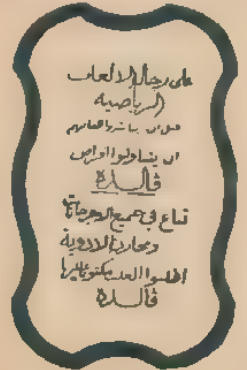 على رجال الالعاب
الرياضية
قبل ان يباشروا العابهم
ان يتناولوا اقراص
ڤالسدة
تباع في جميع الاجزاخانات
ومخازن الادوية
اطلبوا العلب مكتوب عليها
ڤالسدة